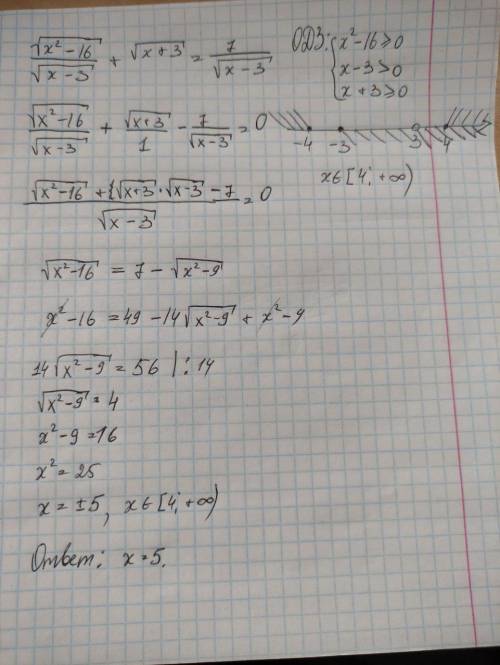 √(x²-16)/√(x-3) + √(x+3) = 7/√(x-3)
ОДЗ: { x²-16≥0
x-3>0
x+3≥0
√(x²-16)/√(x-3) + √(x+3)/1 - 7/√(x-3) = 0
-4 -3 3 4
x∈[4; +∞)
(√(x²-16) + √(x+3)·√(x-3) - 7)/√(x-3) = 0
√(x²-16) = 7 - √(x²-9)
x²-16 = 49 - 14√(x²-9) + x²-9
14√(x²-9) = 56 | : 14
√(x²-9) = 4
x²-9 = 16
x² = 25
x = ±5, x∈[4; +∞)
Ответ: x=5.